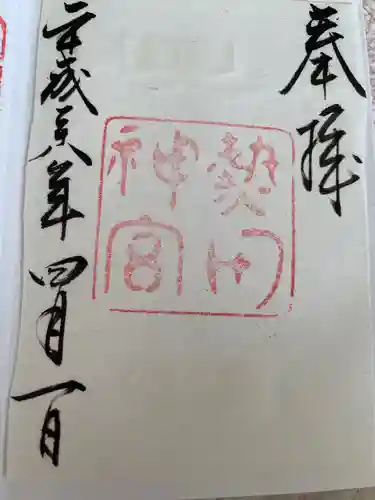 奉拝
熱田
神宮
平成二十八年四月一日